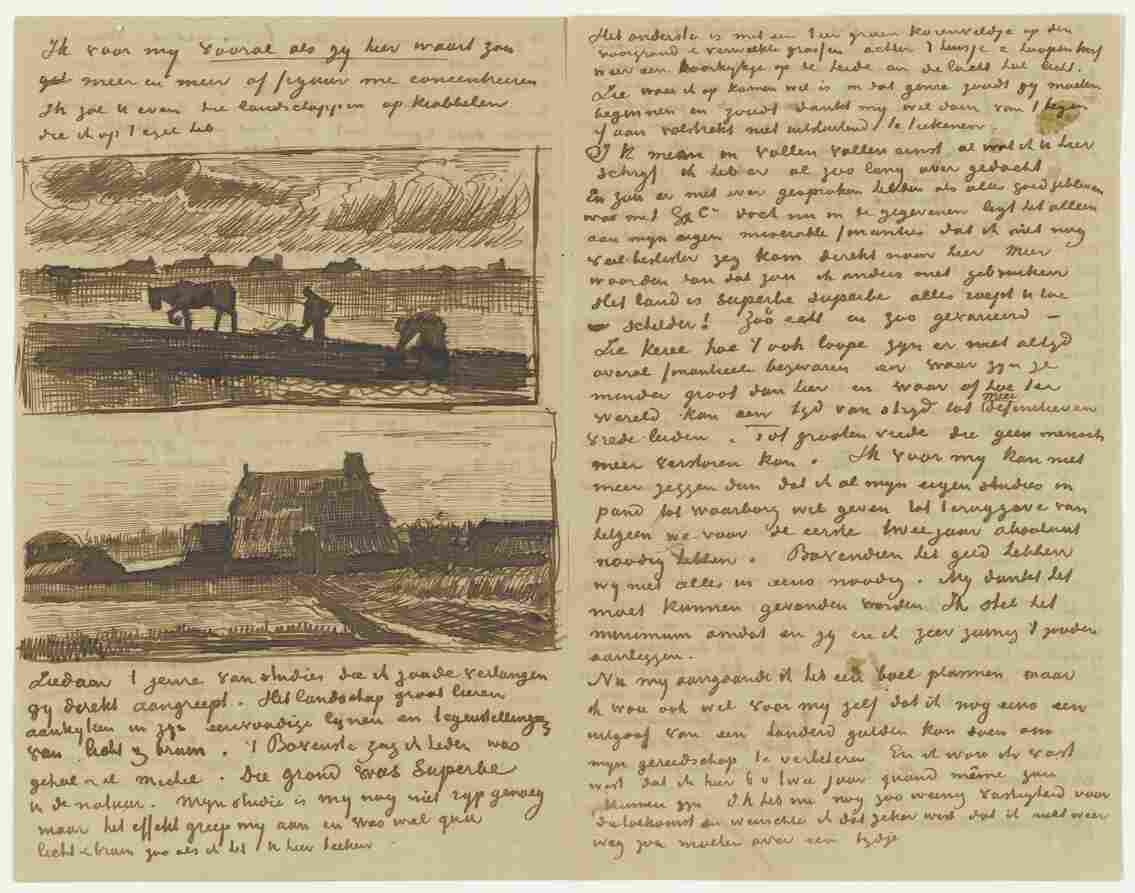 Ik voor my vooral als gy hier waart zou
meer en meer op figuur me concentreeren
Ik zal u even die landschappen op krabbelen
die ik op 't ezel heb
Ziedaar 't genre van studies die ik zoude verlangen
gy direkt aangreept. Het landschap groot leeren
aankyken in zyn eenvoudige lynen en tegenstellingen
van licht & bruin. 't Bovenste zag ik heden was
geheel en al Michel. Die grond was superbe
in de natuur. Myn studie is my nog niet ryp genoeg
maar het effekt greep my aan en was wel qua
licht & bruin zoo als ik het U hier teeken
Het onderste is met een teer groen korenveldje op den
voorgrond & verwelkte grassen achter 't huisje 2 turfhoopen
weer een doorkykje op de heide en de lucht heel licht.
Zie waar ik op komen wil is in dat genre zoudt gy moeten
beginnen en zoudt dunkt my wel doen van 't begin
af aan volstrekt niet uitsluitend te teekenen.
Ik meen in vollen vollen ernst al wat ik U hier
schryf ik heb er al zoo lang over gedacht
En zou er niet over gesproken hebben als alles goed gebleven
was met G&Cie doch nu in de gegevenen ligt het alleen
aan myn eigen miserable finanties dat ik niet nog
veel beslister zeg kom direkt naar hier Meer
woorden van dat zou ik anders niet gebruiken
Het land is superbe superbe alles roept U toe
schilder! Zóó echt en zoo gevarieerd –
Zie kerel hoe 't ook loope zyn er niet altyd
overal finantieele bezwaren en waar zyn ze
minder groot dan hier en waar of ter
wereld kan een tyd van stryd tot meer definitieven
vrede leiden. Tot grooten vrede die geen mensch
meer verstoren kan. Ik voor my kan niet
meer zeggen dan dat ik al myn eigen studies in
pand tot waarborg wil geven tot teruggave van
hetgeen we voor de eerste twee jaar absoluut
noodig hebben. Bovendien het geld hebben
wy niet alles in eens noodig. My dunkt het
moet kunnen gevonden worden Ik stel het
minimum omdat en gy en ik zeer zuinig 't zouden
aanleggen.
Nu my aangaande ik heb een boel plannen maar
ik wou ook wel voor my zelf dat ik nog eens een
uitgaaf van een honderd gulden kon doen om
myn gereedschap te verbeteren. En ik wou ik vast
wist dat ik hier b v twee jaar quand même zou
kunnen zyn. Ik heb nu nog zoo weinig vastigheid voor
de toekomst en wenschte ik dat zeker was dat ik niet weer
weg zou moeten over een tydje